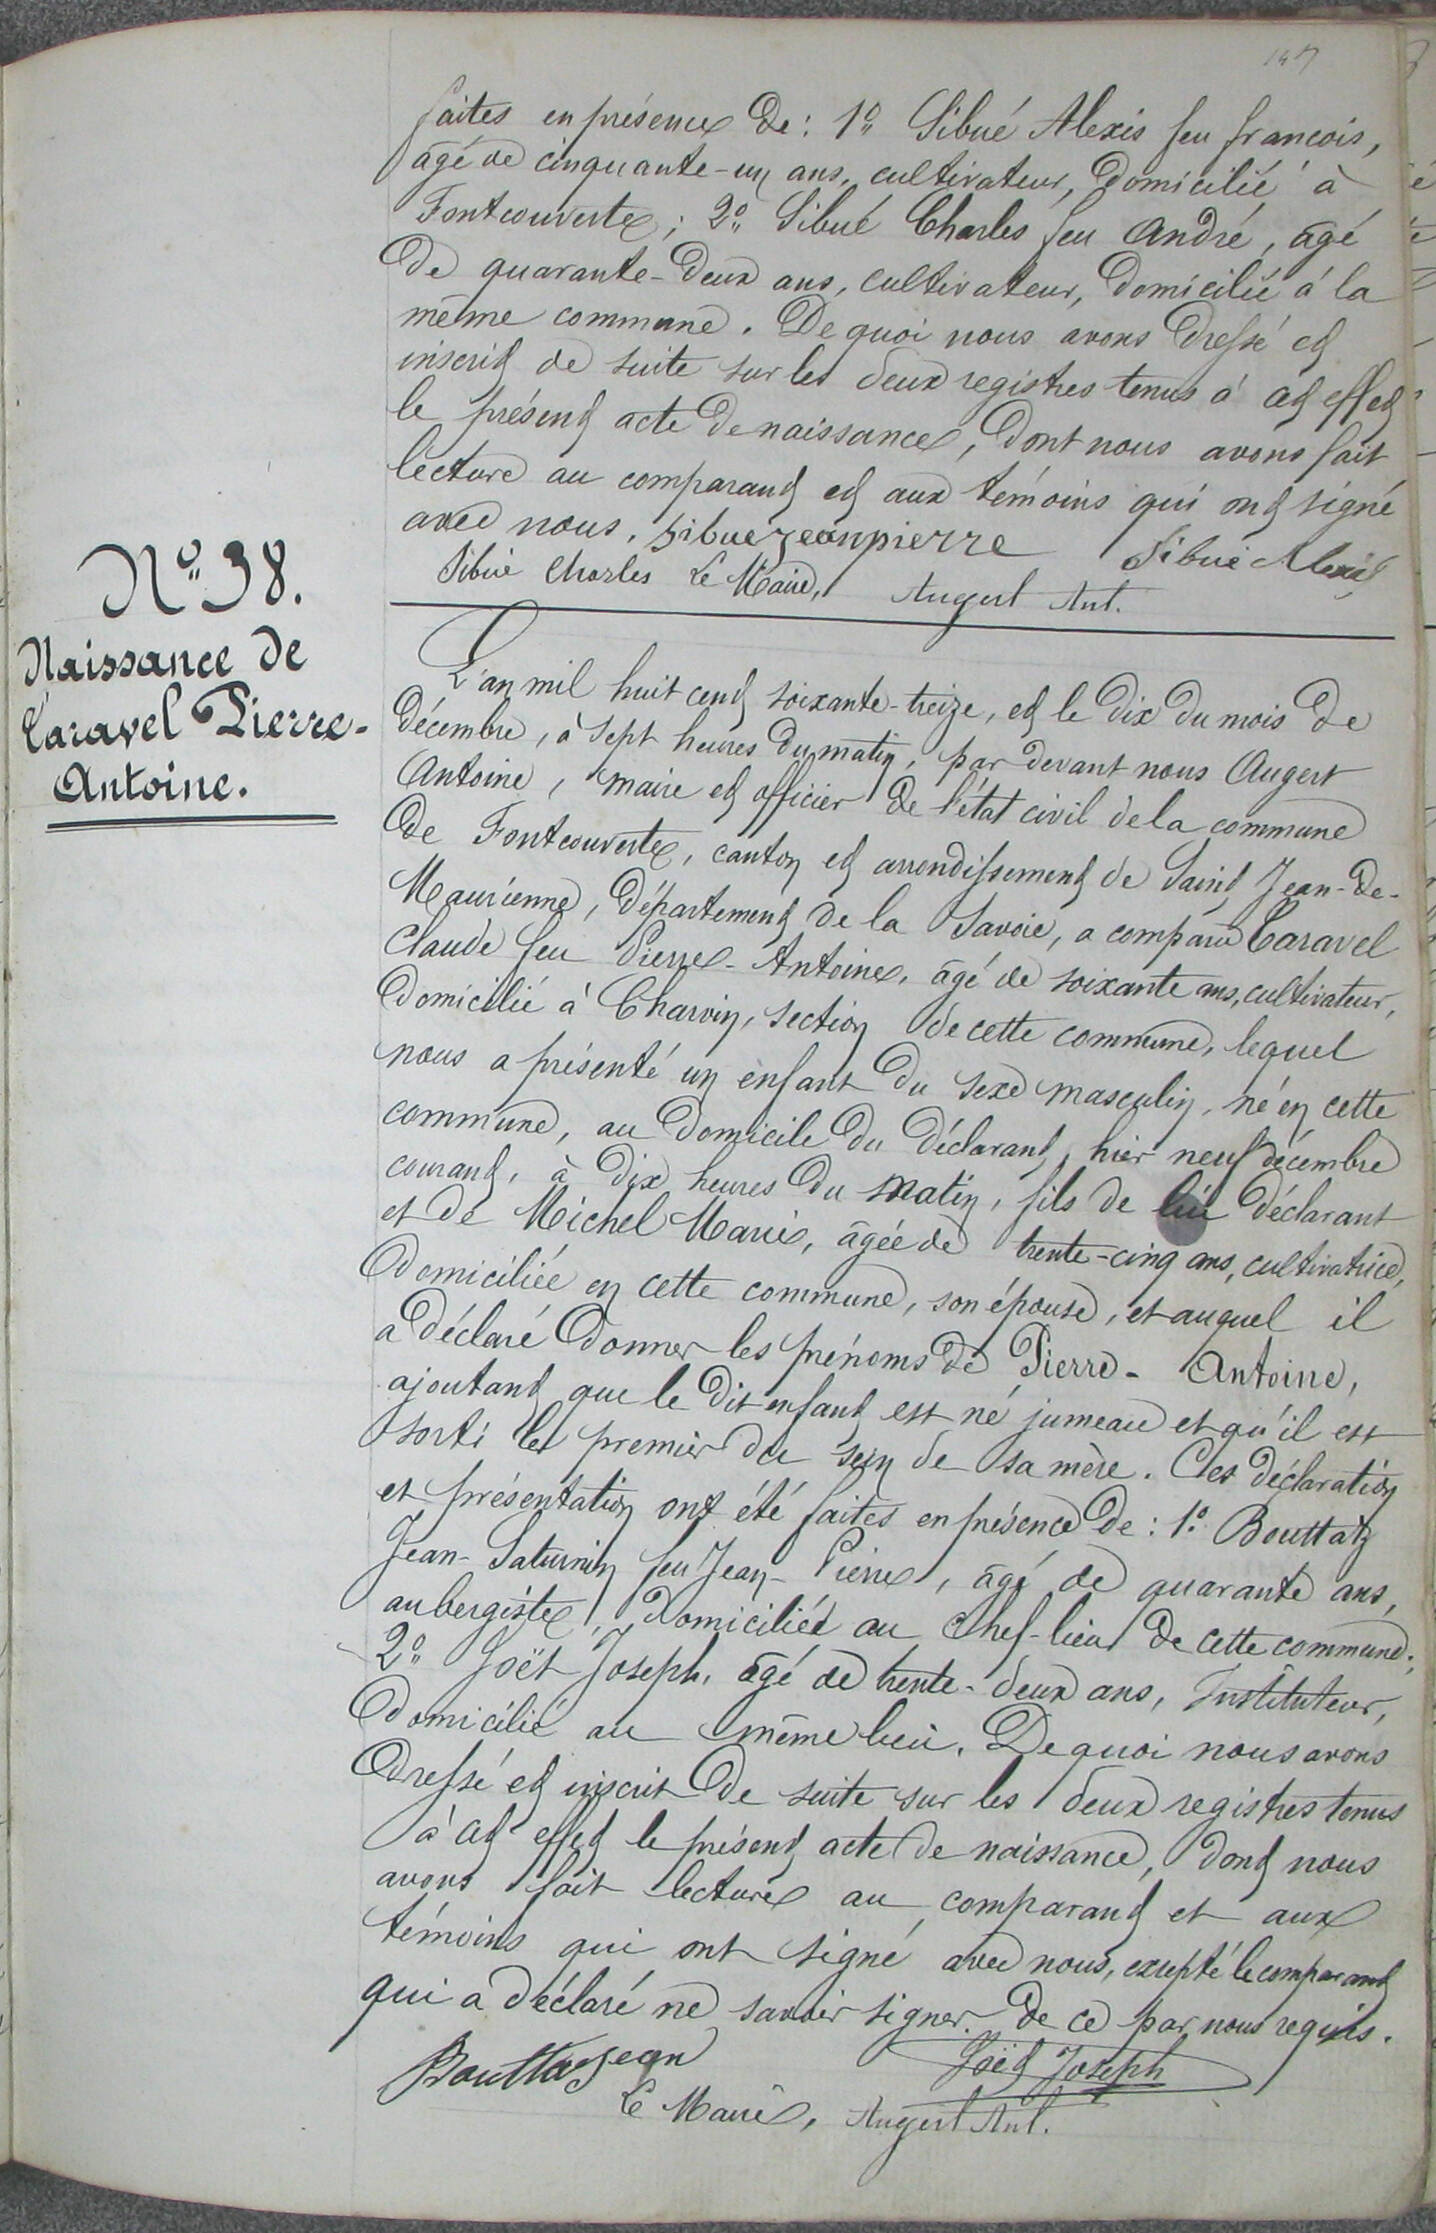 147
faites en présence de : 1º Sibué Alexis feu francois,
âgé de cinquante-un ans, cultivateur, domicilié à
Fontcouverte ; 2º Sibué Charles feu André, âgé
de quarante-deux ans, cultivateur, domicilié à la
même commune. De quoi nous avons dressé et
inscrit de suite sur les deux registres tenus à cet effet
le présent acte de naissance, dont nous avons fait
lecture au comparant et aux témoins qui ont signé
avec nous. Sibue jeanpierre Sibué Alexis
Sibué Charles Le Maire, Augert Ant.
Nº 38.
Naissance de
Caravel Pierre-
Antoine.
L'an mil huit cent soixante-treize, et le dix du mois de
décembre, à sept heures du matin, par devant nous Augert
Antoine, maire et officier de l'état civil de la commune
de Fontcouverte, canton et arrondissement de Saint Jean-de-
Maurienne, département de la Savoie, a comparu Caravel
Claude feu Pierre-Antoine, âgé de soixante ans, cultivateur,
domicilié à Charvin, section de cette commune, lequel
nous a présenté un enfant du sexe masculin, né en cette
commune, au domicile du déclarant, hier neuf décembre
courant, à dix heures du matin, fils de lui déclarant
et de Michel Marie, âgée de trente-cinq ans, cultivatrice,
domiciliée en cette commune, son épouse, et auquel il
a déclaré donner les prénoms de Pierre-Antoine,
ajoutant que le dit enfant est né jumeau et qu'il est
sorti le premier du sein de sa mère. Ces déclaration
et présentation ont été faites en présence de : 1º Bouttaz
Jean-Saturnin feu Jean-Pierre, âgé de quarante ans,
aubergiste, domicilié au chef-lieu de cette commune ;
2º Joët Joseph, âgé de trente-deux ans, Instituteur,
domicilié au même lieu. De quoi nous avons
dressé et inscrit de suite sur les deux registres tenus
à cet effet le présent acte de naissance, dont nous
avons fait lecture au comparant et aux
témoins qui ont signé avec nous, excepté le comparant
qui a déclaré ne savoir signer de ce par nous requis.
Bouttaz jean Joët Joseph
Le Maire, Augert Ant.